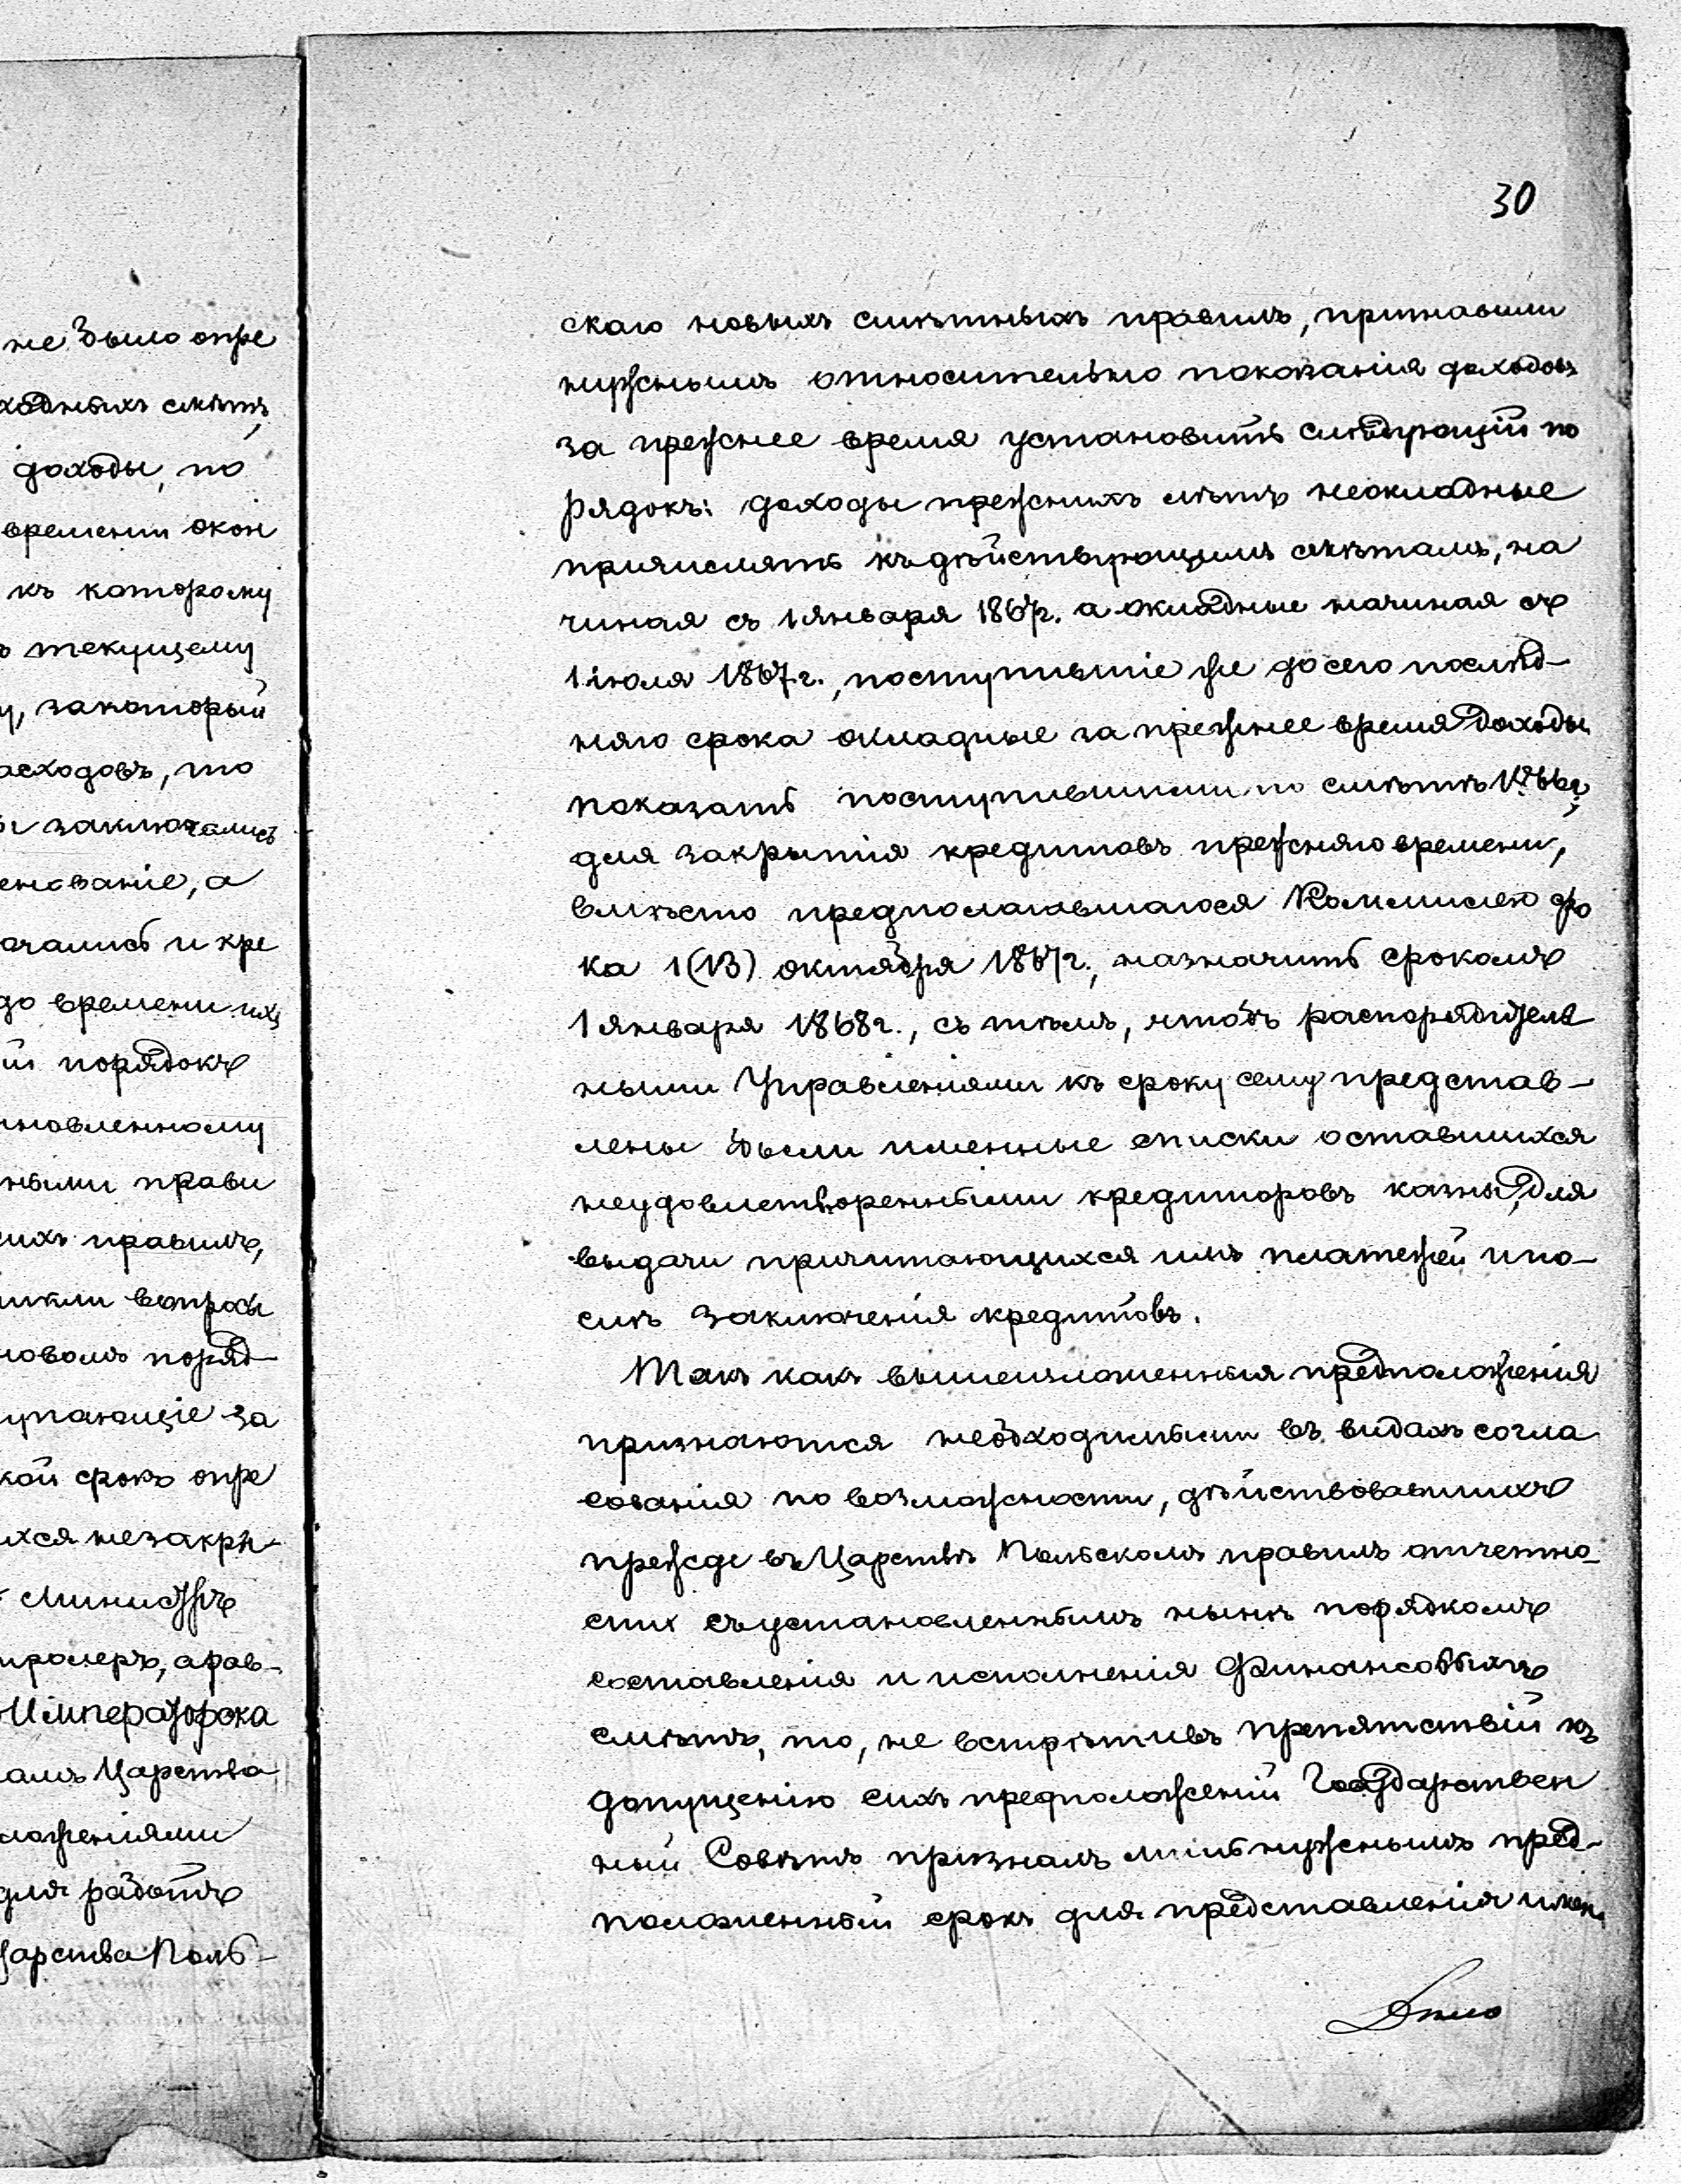 не было опре
ходныхъ смѣтъ,
доходы, по
времени окон
къ которому
текущему
, закоторый
асходовъ, то
заключались
енованіе, а
ючались и кре
до времени ихъ
порядокъ
ановленному
ными прави
ихъ правилъ,
никли вопросы
новомъ поряд-
упающіе за
кой срокъ опре
ихся незакры-
Министръ
тролеръ, арав-
Императорска
амъ Царства
ложеніями
для работъ
Царства Поль-
30
скаго новыхъ смѣтныхъ правилъ, признавши
нужнымъ относительно показанія доходовъ
за прежнее время установить слѣдующій по
рядокъ: доходы прежнихъ лѣтъ неокладные
причислять къ дѣйствующимъ смѣтамъ, на
чиная съ 1 января 1867г. а окладные начиная съ
1 июля 1867г., поступившіе же до сего послѣд-
няго срока окладные за прежнее время доходы
показать поступившими по смѣтѣ 1866г,
для закрытія кредитовъ прежняго времени,
вмѣсто предполагавшагося Коммисіею сро
ка 1(13) октября 1867г., назначить срокомъ
1 января 1868г., съ тѣмъ, чтобъ распорядитель
ными Управленіями къ сроку сему представ-
лены были именные списки оставшихся
неудовлетворенными кредиторовъ казны, для
выдачи причитающихся имъ платежей и по-
слѣ заключенія кредитовъ.
Такъ какъ вышеизложенныя предположенія
признаются необходимыми въ видахъ согла
сованія по возможности, дѣйствовавшихъ
прежде въ Царствѣ Польскомъ правилъ отчетно-
сти съ установленнымъ нынѣ порядкомъ
составленія и исполненія финансовыхъ
смѣтъ, то, не встрѣтивъ препятствій къ
допущенію сихъ предположеній Государствен
ный Совѣтъ призналъ лишь нужнымъ пред-
положенный срокъ для представленія имен